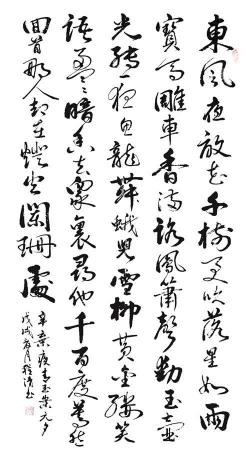 東風夜放花千樹更吹落星如雨
寶馬雕車香滿路鳳簫聲動玉壺
光轉一夜魚龍舞蛾兒雪柳黃金縷笑
語盈盈暗香去眾裏尋他千百度驀然
回首那人卻在燈火闌珊處
辛棄疾青玉案元夕
戊戌